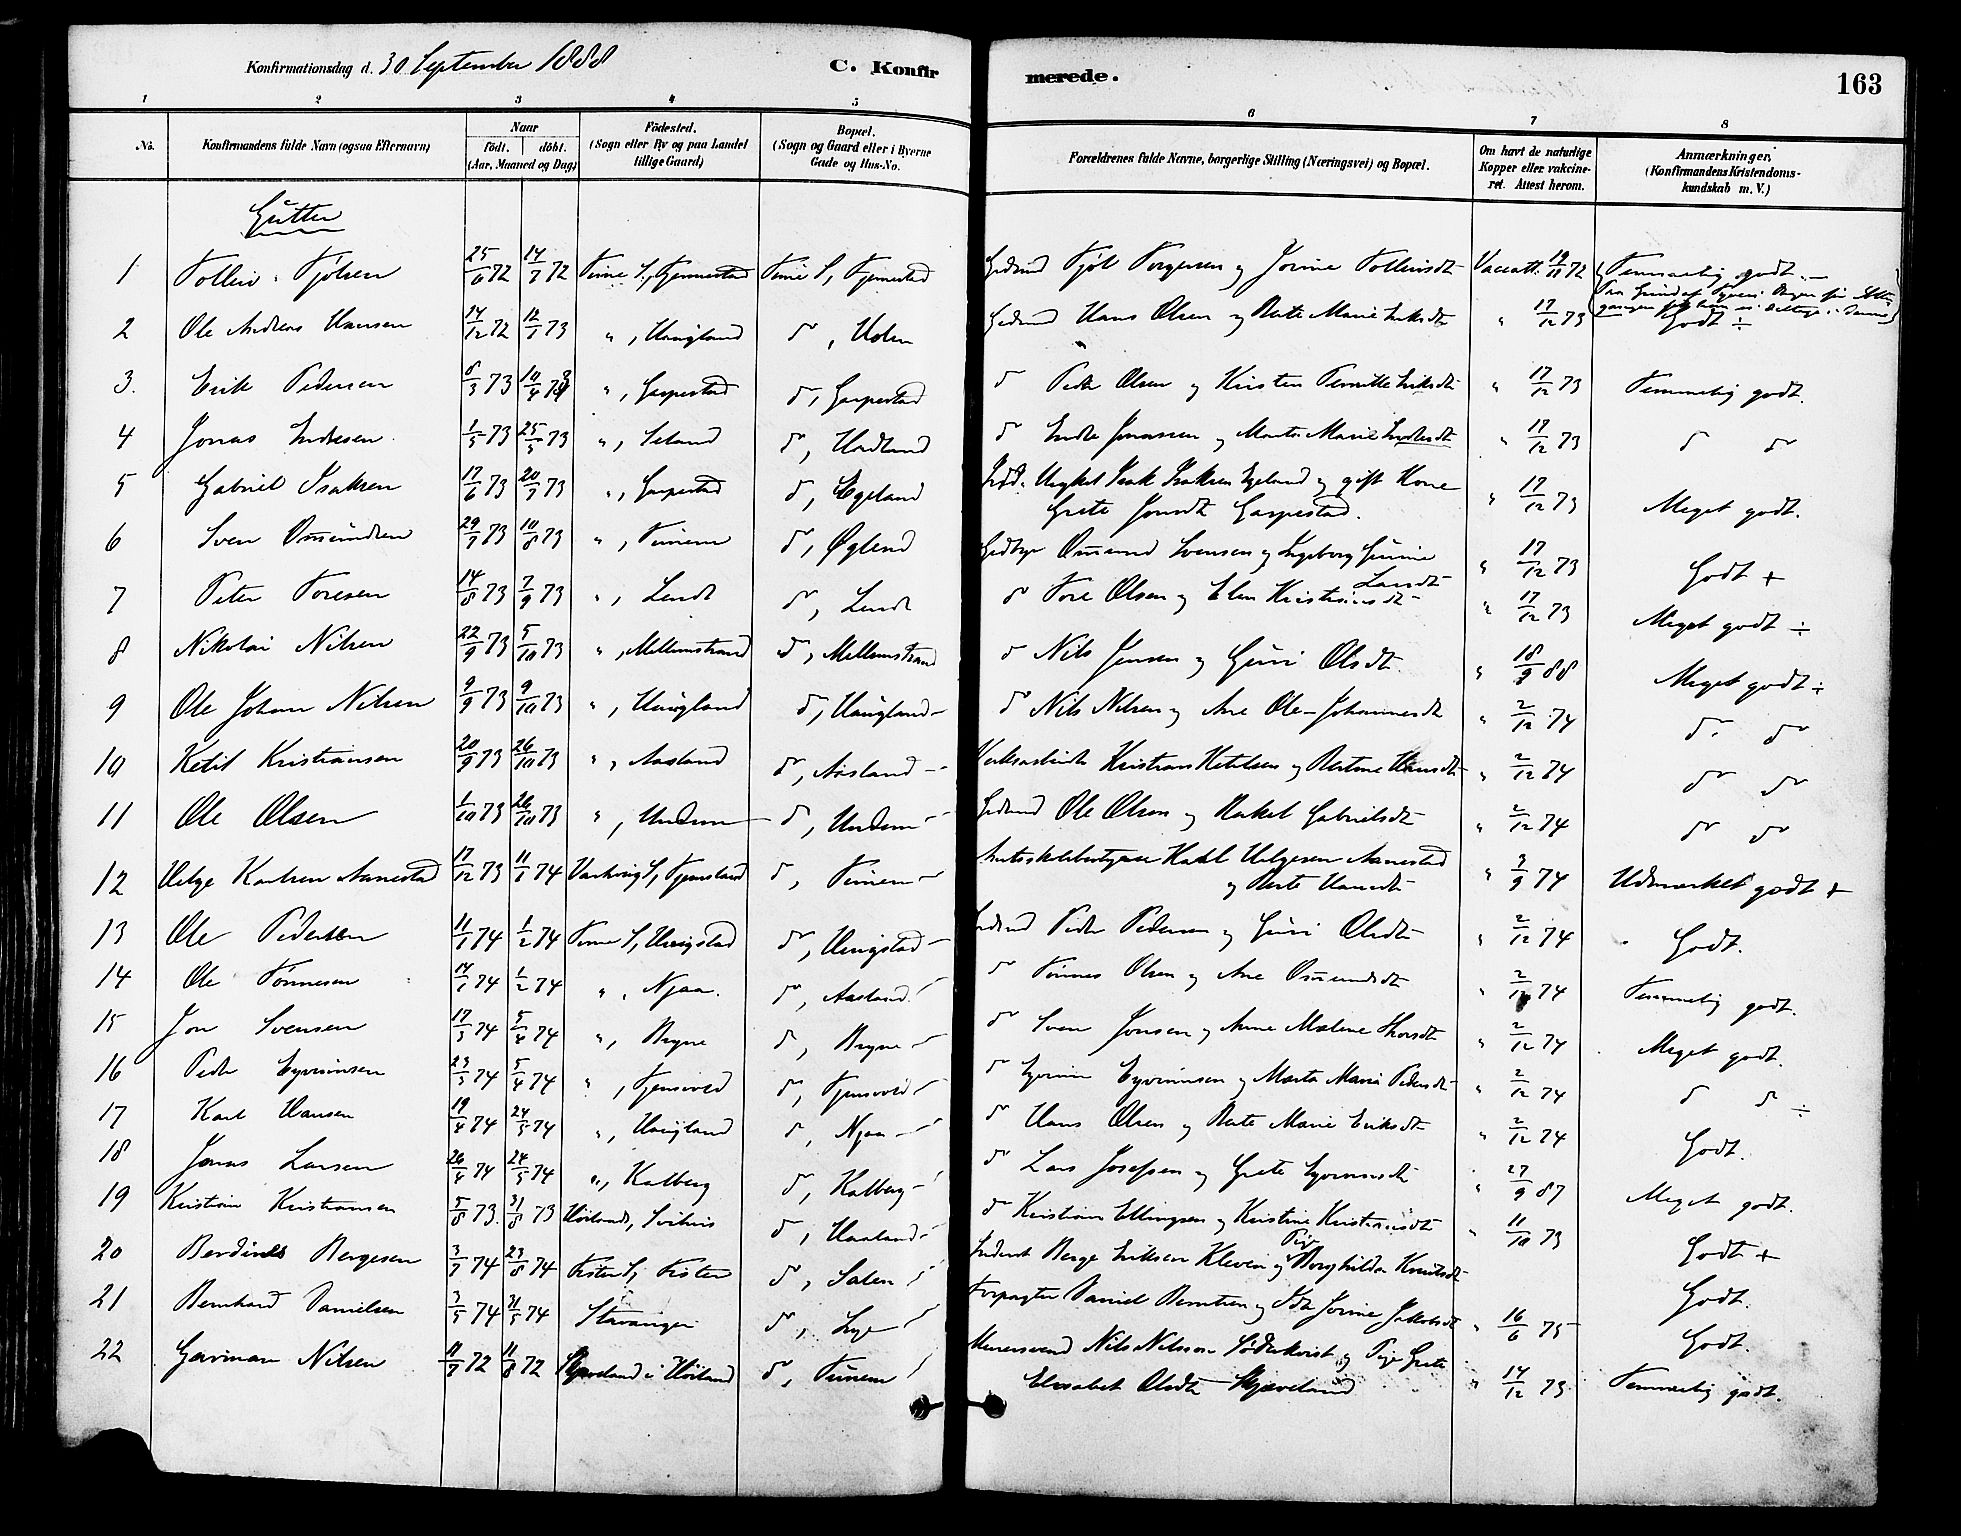 Konfirmationsdag d. 30 September 1888
C. Konfirmerede.
163
1 2 3 4 5 6 7 8
No.
Konfirmandens fulde Navn (ogsaa Efternavn)
Naar
födt. döbt.
(Aar, Maaned og Dag)
Födested.
(Sogn eller By og paa Landet
tillige Gaard)
Bopæl.
(Sogn og Gaard eller i Byerne
Gade og Hus-No.
Forældrenes fulde Navne, borgerlige Stilling (Næringsvei) og Bopæl.
Om havt de naturlige
Kopper eller vakcine-
ret. Attest herom.
Anmærkninger,
(Konfirmandens Kristendoms-
kundskab m. V.)
Gutter
1 Tollev Fjölsen 25/6 72 14/7 72 Time S., Time S, Gbrmd Fjöl Torgersen og Jorine Tollevsdt Vaccatt. 19/11 72 Temmelig godt.
2 Ole Andreas Hansen 14/12 72 12/1 73 ", Haugland d, Holen Gbrmd Hans Olsen og Berte Marie Eriksdt " 17/12 73 Godt ÷
3. Erik Pedersen 8/3 73 10/4 73 ", Garpestad d, Garpestad d Peder Olsen og Kirsten Pernille Eriksdt " 17/12 73 Temmelig godt.
4 Jonas Endresen 1/5 73 25/5 73 ", Seland d, Hadland d Endre Jonassen og Marta Marie Endresdt " 17/12 73 d d
5 Gabriel Isaksen 17/6 73 20/7 73 ", Garpestad d, Egeland Ungkal Isak Isaksen Egeland og gift Kone
Grete Jonsdt Garpestad. " 17/12 73 Meget godt.
6 Sven Osmundsen 29/7 73 10/8 73 ", Timem d, Øglend Osmund Svensen og Ingeborg Gurine
Larsdt " 17/12 73 Godt +
7 Peter Toresen 14/8 73 7/9 73 ", Lende d, Lende d Tore Olsen og Elen Kristiansdt " 17/12 73 Meget godt ÷
8 Nikolai Nilsen 22/9 73 5/10 73 ", Mellemstrand d, Mellemstrand d Nils Jensen og Guri Olsdt " 18/9 88 Meget godt ÷
9 Ole Johan Nilsen 9/9 73 9/10 73 ", Haugland d, Haugland d Nils Nilsen og Ane Ole-Johannesdt " 2/12 74 d d
10 Ketil Kristiansen 20/9 73 26/10 73 ", Aasland d, Aasland Kristian Ketilsen og Bertine Hansdt " 2/12 74 d d
11 Ole Olsen 1/10 73 26/10 73 ", Undem d, Undem Gbrmd Ole Olsen og Rakel Gabrielsdt " 2/12 74 d d
12 Helge Karlsen Aanestad 17/12 73 11/1 74 Varhoug S, Tjensland d, Timem Karl Helgesen Aanestad
og Berte Hansdt " 3/9 74 Udmærket godt +
13 Ole Pedersen 11/1 74 1/2 74 Time S, Haugstad d, Haugstad Gbrmd Peder Pedersen og Guri Olsdt " 2/12 74 Godt.
14 Ole Tönnesen 14/1 74 1/2 74 ", Njaa. d, Aasland. d Tönnes Olsen og Ane Osmundsdt " 2/12 74 Temmelig godt.
15 Jon Svensen 17/3 74 5/4 74 ", Bryne d, Bryne d Sven Jonsen og Anne Malene Thorsdt " 2/12 74 Meget godt.
16 Peder Eyvinsen 23/3 74 5/4 74 ", Fjensvold d, Fjensvold d Eyvin Eyvinsen og Marta Marie Pedersdt " 2/12 74 d d ÷
17 Karl Hansen 19/4 74 24/5 74 ", Haugland d, Njaa d Hans Olsen og Berte Marie Eriksdt " 2/12 74 Godt.
18 Jonas Larsen 26/4 74 24/5 74 ", Kalberg d, Kalberg d Lars Josefsen og Grete Eyvinsdt " 27/9 87 Meget godt.
19 Kristian Kristiansen 5/8 73. 31/8 73 Höilands, d, Haaland d Kristian Ellingsen og Kristine Kristiansdt " 11/10 73 Godt +
20 Berdines Bergesen 3/7 74 23/8 74 Fister S, Fister d, Salen Berge Eriksen Kleven og Pige Borghilda Knudsdt Godt.
21 Bernhard Danielsen 3/5 74 31/5 74 Stavanger d, Lye Forpagter Daniel Berntsen og Jorine Jakobsdt " 16/6 75 Godt.
22 Garman Nilsen 11/7 72 11/8 72 Skjæveland i Höiland d, Timem Murersvend Nils Nilsson Söderkvist og Pige Grete
Elisabet Olsdt Skjæveland " 14/12 73 Temmelig godt.